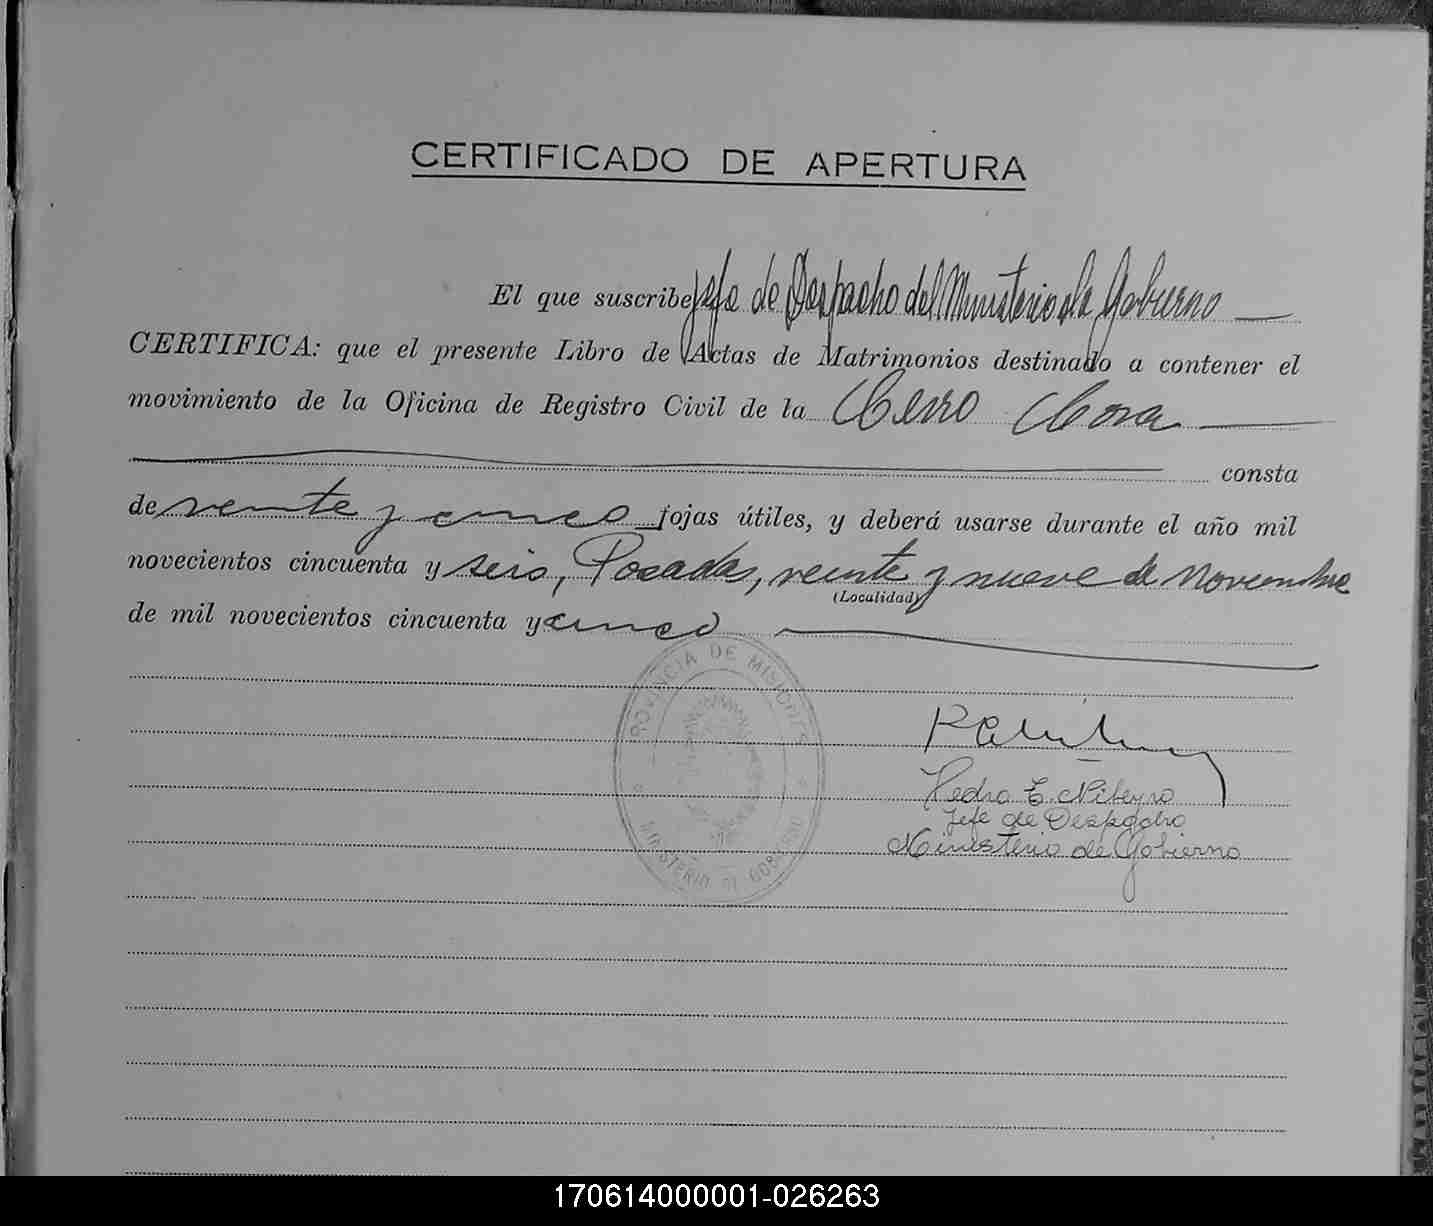 CERTIFICADO DE APERTURA
El que suscribe Jefe de Despacho del Ministerio de Gobierno
CERTIFICA: que el presente Libro de Actas de Matrimonios destinado a contener el
movimiento de la Oficina de Registro Civil de la Cerro Cora
consta
de veinte y cinco fojas útiles, y deberá usarse durante el año mil
novecientos cincuenta y seis, Posadas, veinte y nueve de Noviembre
(Localidad)
de mil novecientos cincuenta y cinco
PROVINCIA DE MISIONES
MINISTERIO DE GOBIERNO
Pedro E. Ribeyro
Jefe de Despacho
Ministerio de Gobierno
170614000001-026263